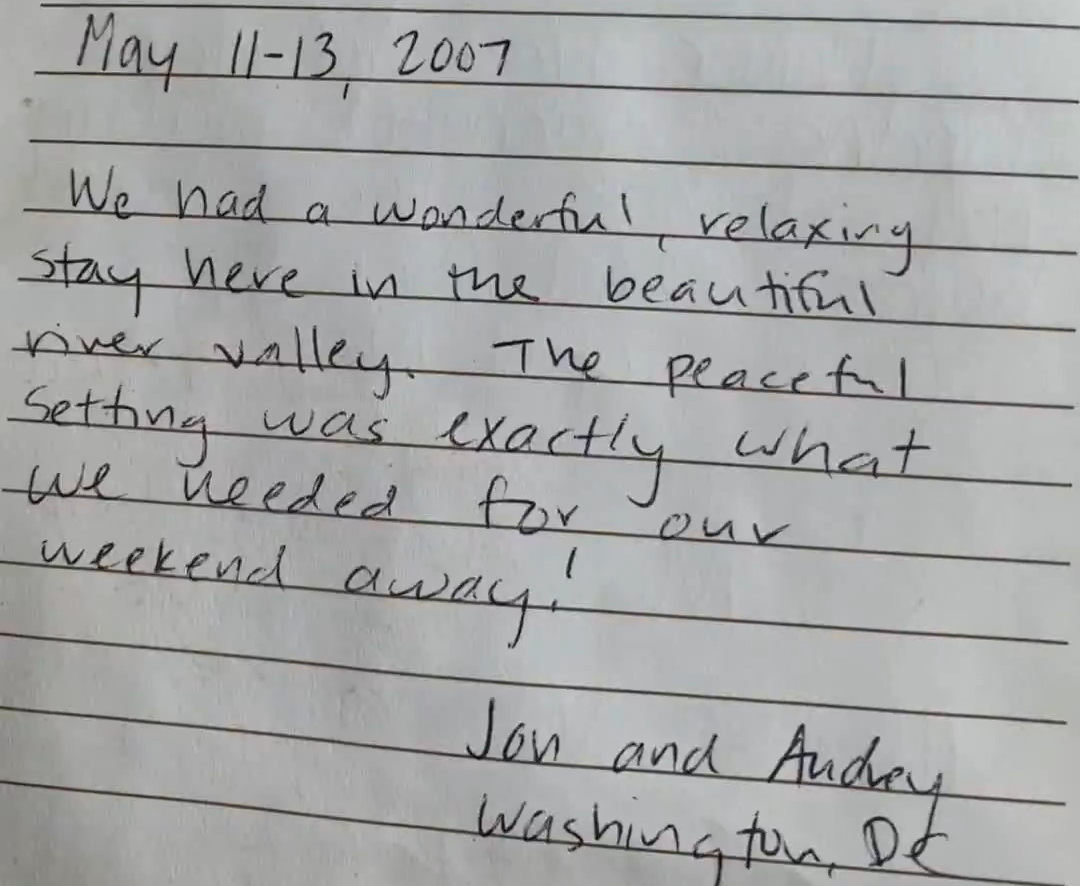 May 11-13, 2007
We had a wonderful, relaxing
stay here in the beautiful
river valley. The peaceful
setting was exactly what
we needed for our
weekend away!
Jon and Audrey
Washington, DC